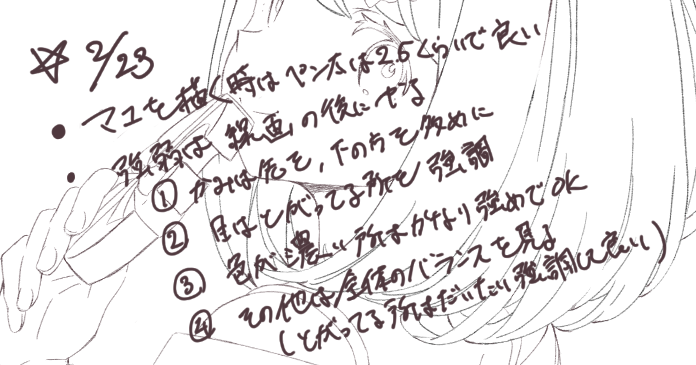 ☆ 2/23
・マユを描く時はペン太は25くらいで良い
・強弱は線画の後にやる
① かみは先を、下の方を多めに
② 目はとがってる所を強調
③ 色が濃い所はかなり強めでOK
④ その他は全体のバランスを見る
(とがってる所はだいたい強調して良い)